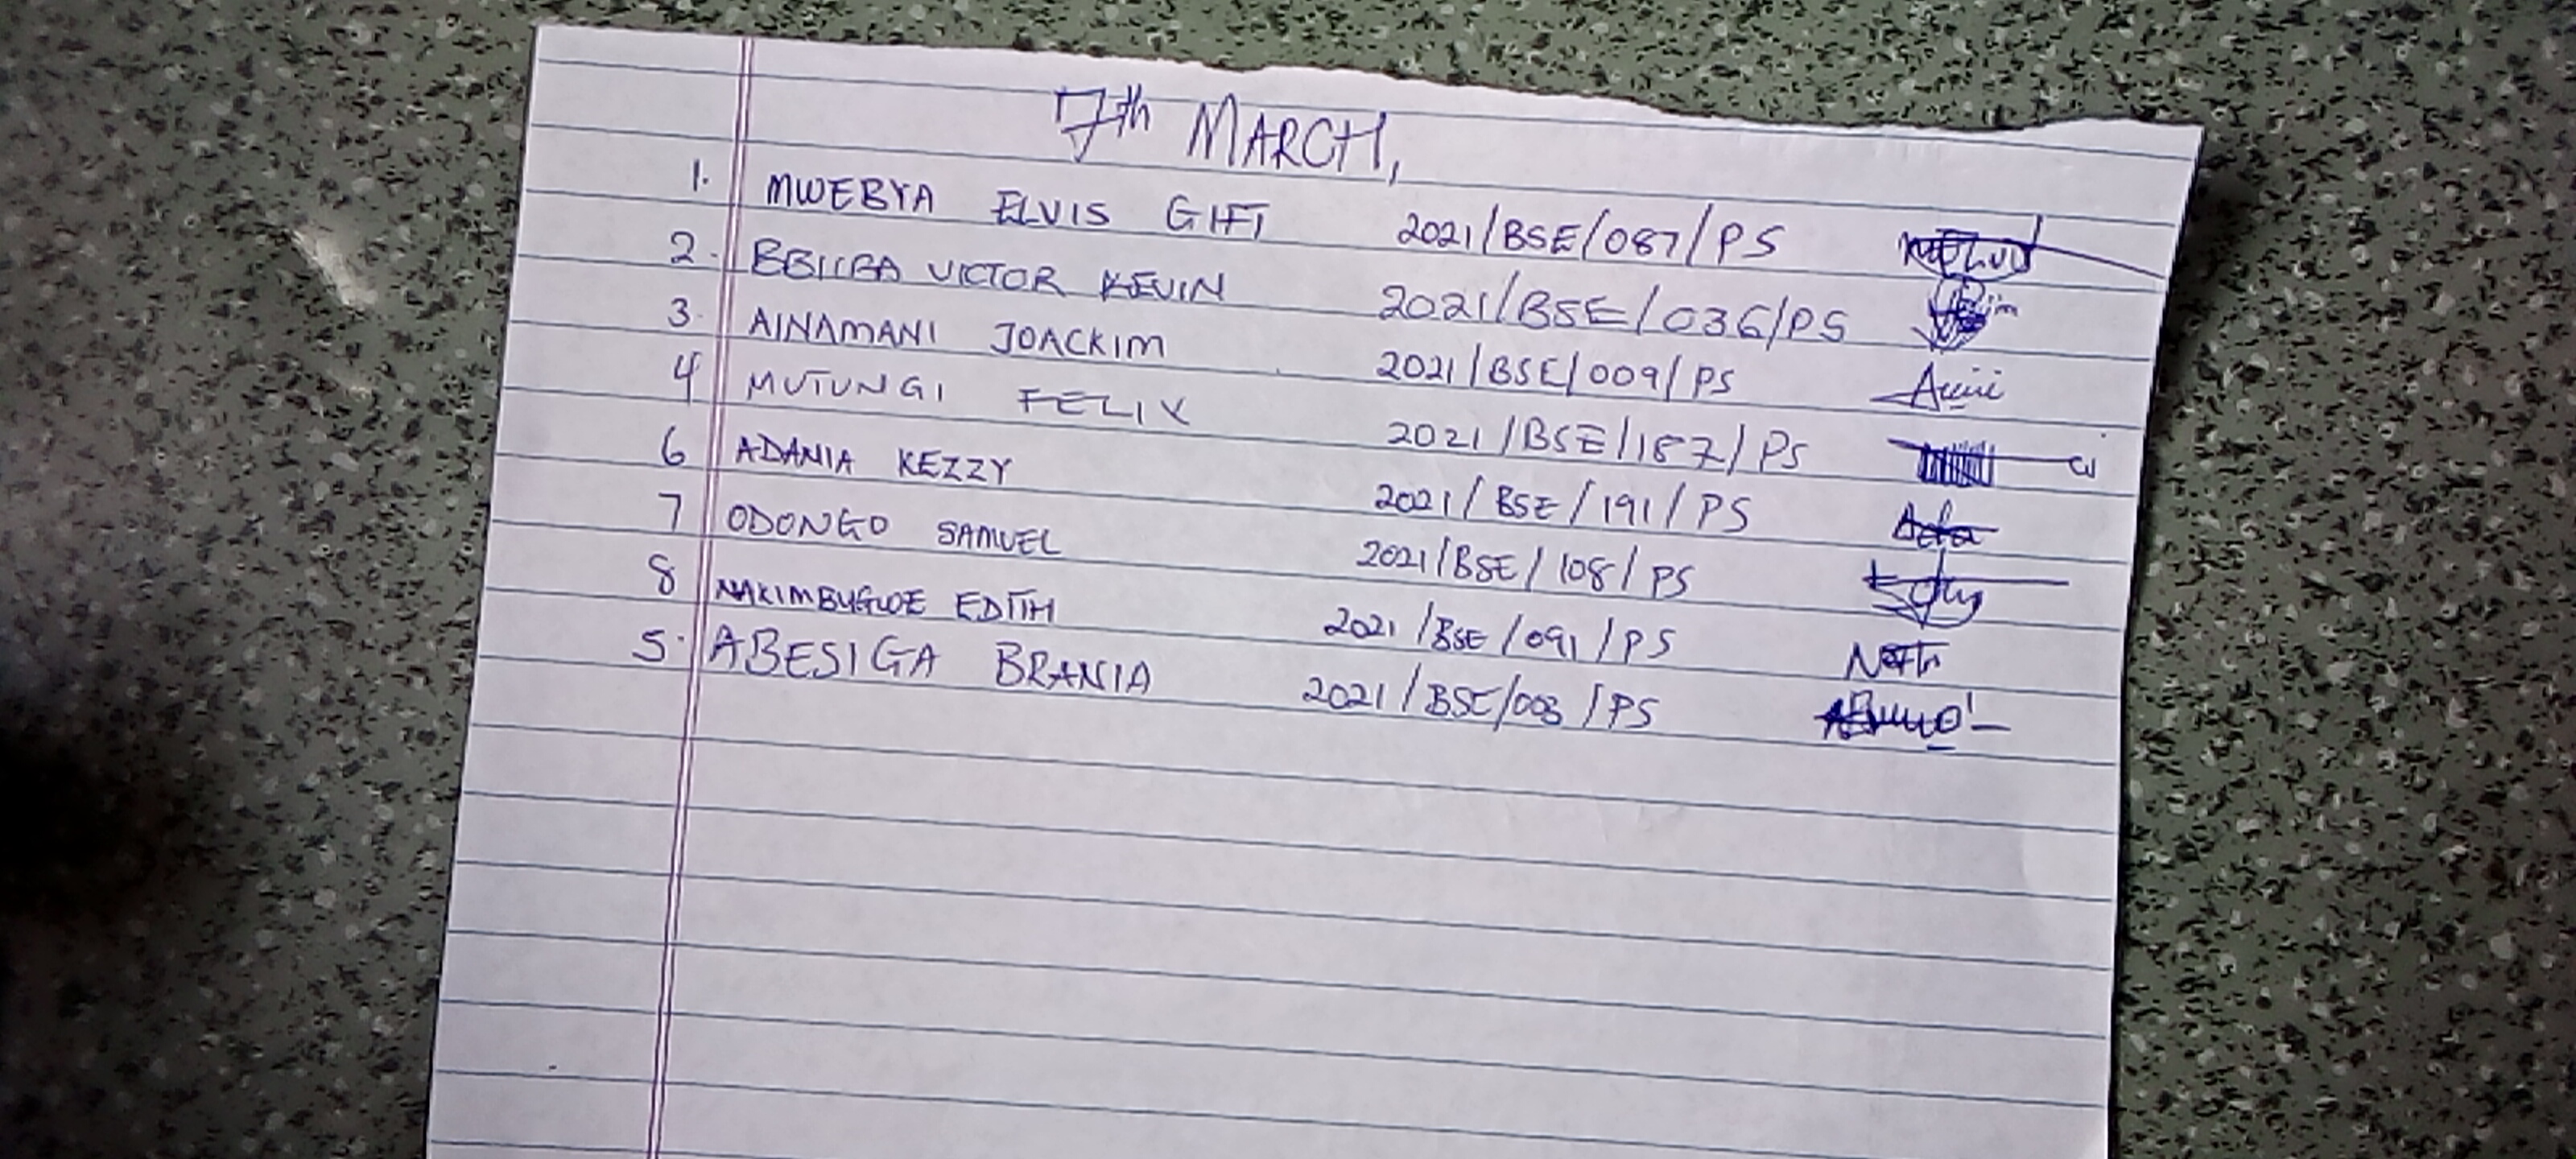 7th MARCH,
1. MWEBYA ELVIS GIFT 2021/BSE/087/PS
2. VICTOR KEVIN 2021/BSE/036/PS
3. AINAMANI JOACKIM 2021/BSE/009/PS
4 MUTUNGI FELIX 2021/BSE/187/PS
6 ADANIA KEZZY 2021/BSE/191/PS
7 ODONGO SAMUEL 2021/BSE/108/PS
8 EDITH 2021/BSE/091/PS
5. ABESIGA BRANIA 2021/BSE/003/PS